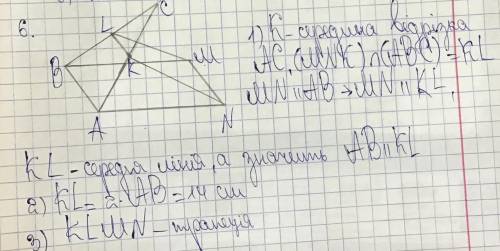 6.
C
L
M
B
K
A
N
1) K - середина відрізка
AC, (MNK) ∩ (ABC) = KL
MN ∥ AB → MN ∥ KL.
KL - середня лінія, а значить AB ∥ KL
2) KL = 2 · AB = 14 см
3) KLMN - трапеція